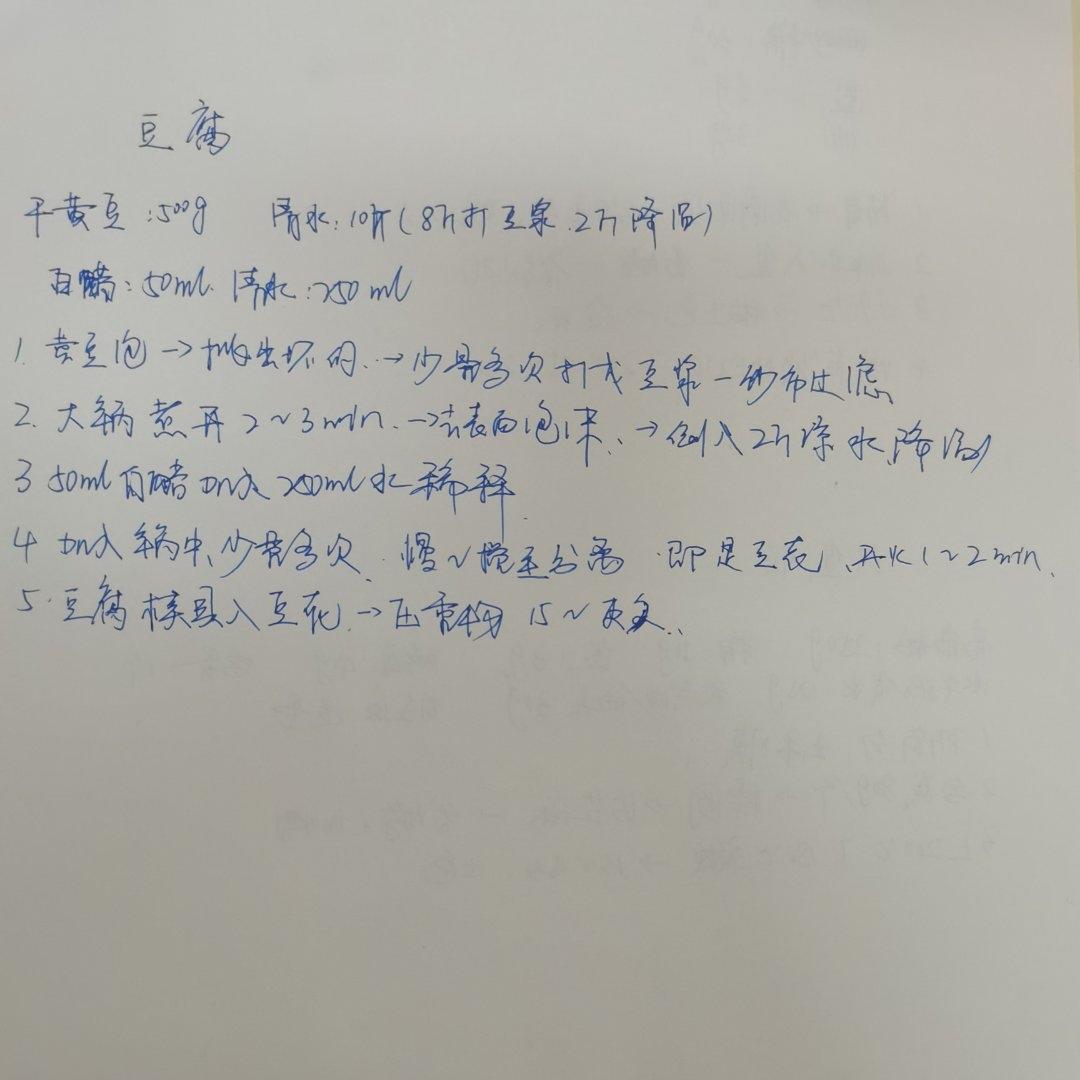 豆腐
干黄豆:500g 清水:10斤(8斤打豆浆.2斤降温)
白醋:50ml. 清水:250ml
1. 黄豆泡→挑出坏的.→少量多次打成豆浆—纱布过滤
2. 大锅煮开2~3min.→去表面泡沫.→倒入2斤凉水降温
3 50ml白醋加入250ml水稀释.
4 加入锅中,少量多次. 慢~搅至分离.即是豆花,开火1~2min.
5.豆腐模具入豆花.→压重物15~更久..